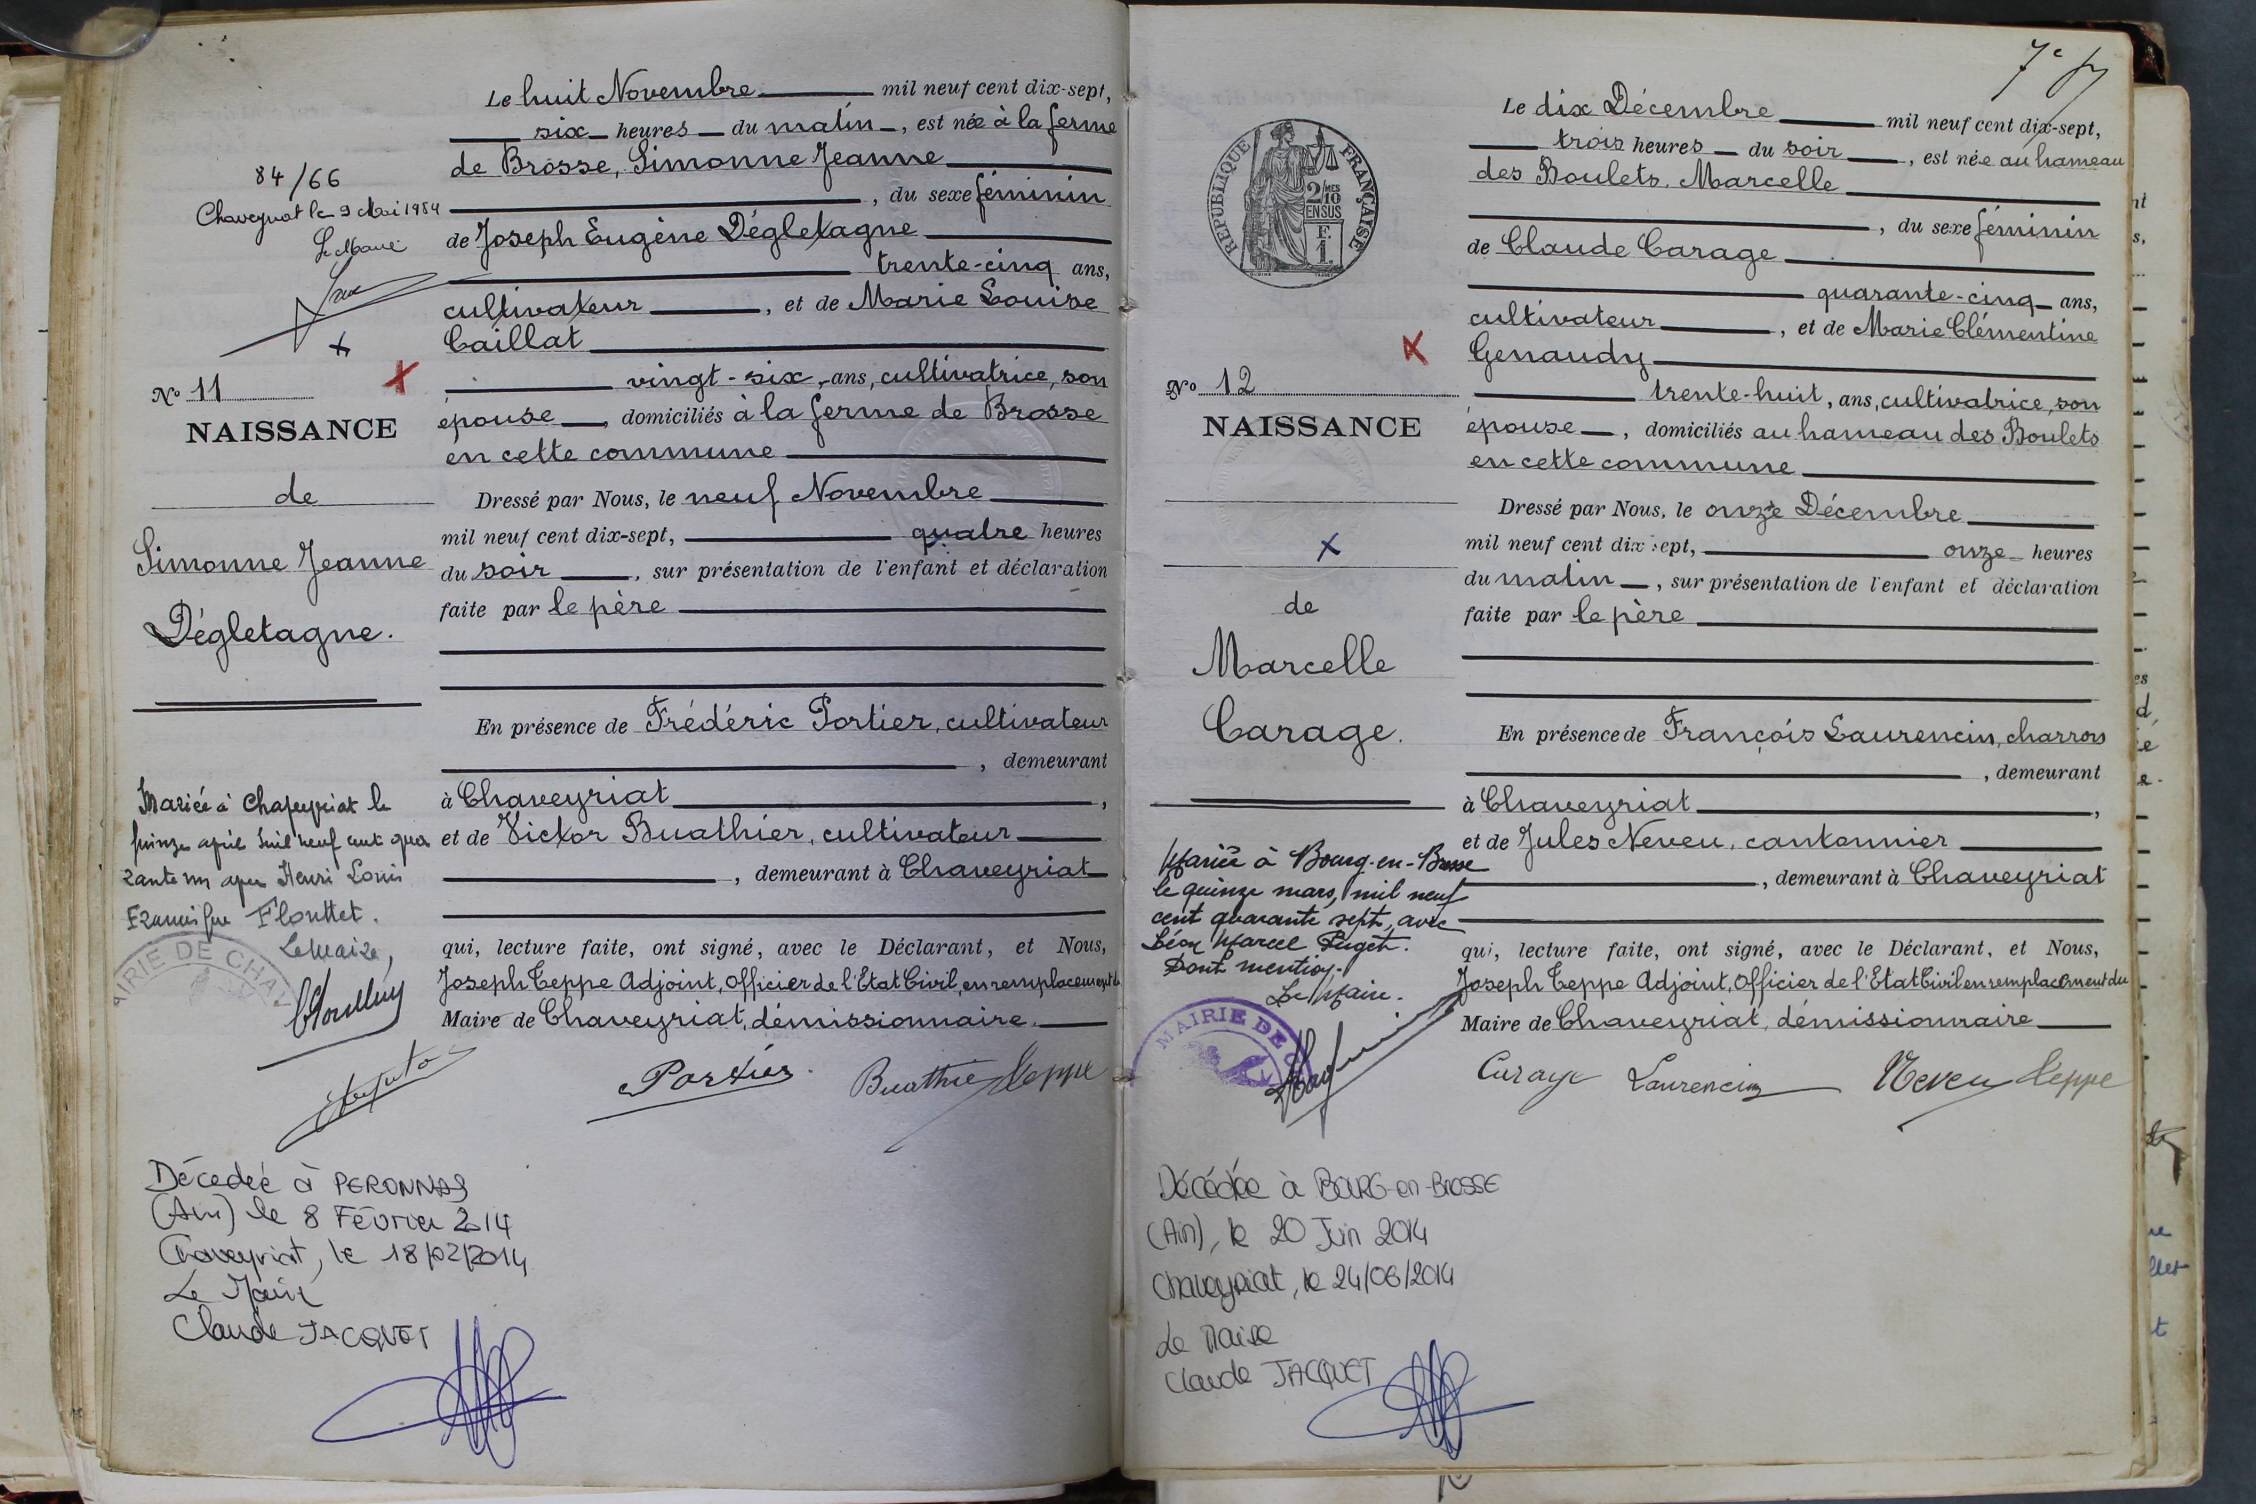 Le huit Novembre mil neuf cent dix-sept,
six heures du matin, est née à la ferme
de Brosse, Simonne Jeanne
, du sexe féminin
de Joseph Eugène Dégletagne
trente-cinq ans,
cultivateur, et de Marie Louise
Caillat
vingt-six ans, cultivatrice, son
épouse, domiciliés à la ferme de Brosse
en cette commune
Dressé par Nous, le neuf Novembre
mil neuf cent dix-sept, quatre heures
du soir, sur présentation de l'enfant et déclaration
faite par le père
En présence de Frédéric Portier, cultivateur
, demeurant
à Chaveyriat,
et de Victor Buathier, cultivateur
, demeurant à Chaveyriat
qui, lecture faite, ont signé, avec le Déclarant, et Nous,
Joseph Teppe Adjoint, Officier de l'Etat Civil, en remplacement du
Maire de Chaveyriat, démissionnaire.
Portier Buathier Teppe
84/66
Chaveyriat le 9 Mai 1984
Le Maire
No 11
NAISSANCE
de
Simonne Jeanne
Dégletagne.
Mariée à Chaveyriat le
quinze avril mil neuf cent qua
rante un avec Henri Louis
Francisque Flouttet.
Le Maire,
MAIRIE DE CHAV
Décédée à PERONNAS
(Ain) le 8 Février 2014
Chaveyriat, le 18/02/2014
Le Maire
Claude JACQUET
7e
Le dix Décembre mil neuf cent dix-sept,
trois heures du soir, est née au hameau
des Boulets, Marcelle
, du sexe féminin
de Claude Carage
quarante-cinq ans,
cultivateur, et de Marie Clémentine
Genaudy
trente-huit, ans, cultivatrice, son
épouse, domiciliés au hameau des Boulets
en cette commune
Dressé par Nous, le onze Décembre
mil neuf cent dix-sept, onze heures
du matin, sur présentation de l'enfant et déclaration
faite par le père
En présence de François Laurencin, charron
, demeurant
à Chaveyriat,
et de Jules Neveu, cantonnier
, demeurant à Chaveyriat
qui, lecture faite, ont signé, avec le Déclarant, et Nous,
Joseph Teppe Adjoint, Officier de l'Etat Civil en remplacement du
Maire de Chaveyriat, démissionnaire
Carage Laurencin Neveu Teppe
RÉPUBLIQUE FRANÇAISE
2/10 MES
EN SUS
F.
1.
No 12
NAISSANCE
de
Marcelle
Carage.
Mariée à Bourg-en-Bresse
le quinze mars, mil neuf
cent quarante sept, avec
Léon Marcel Puget.
Dont mention.
Le Maire.
MAIRIE DE C
Décédée à BOURG-en-BRESSE
(Ain), le 20 Juin 2014
Chaveyriat, le 24/06/2014
Le Maire
Claude JACQUET